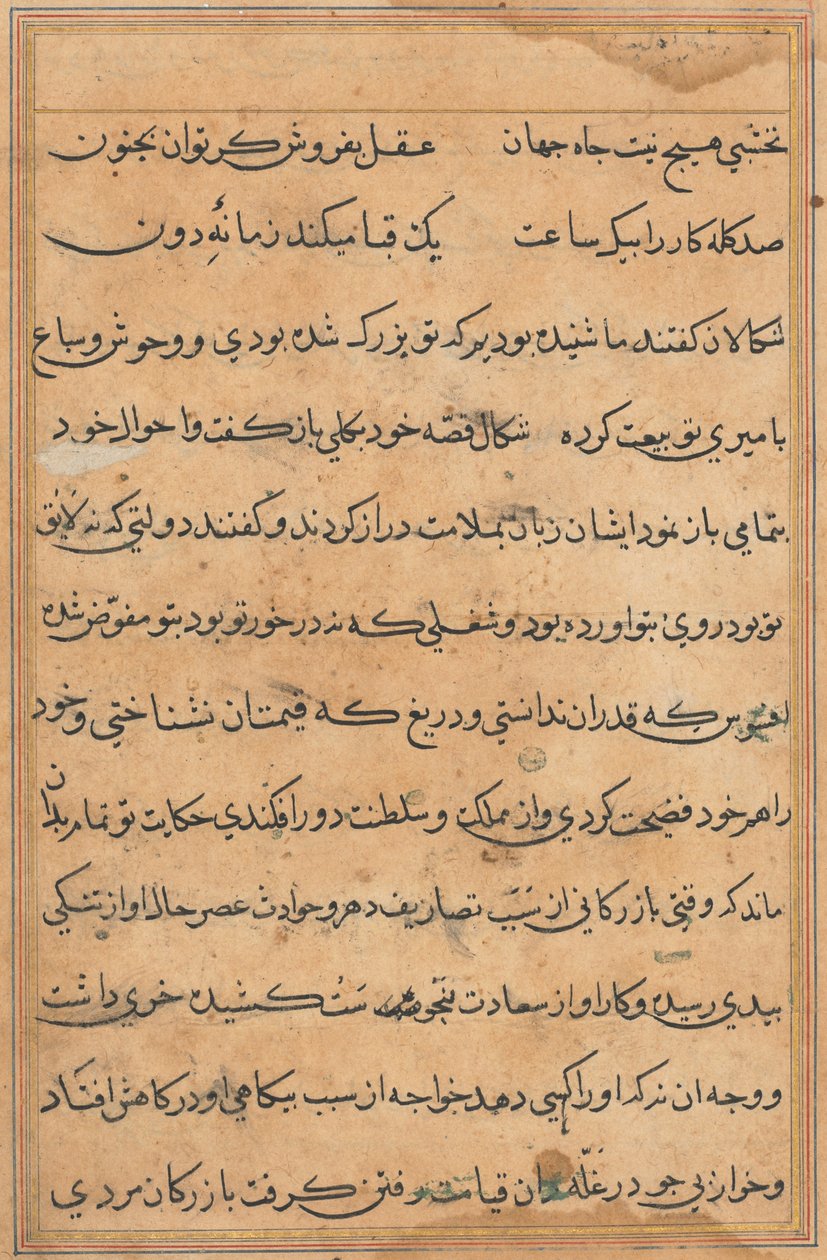 نخشبي هيچ نيست جاه جهان عقل بفروش كر توان بجنون
صد كله كار را بيك ساعت يك قبا ميكند زمانهٔ دون
شكالان كفتند ما شنيده بوديم كه تو بزرك شده بودي و وحوش وسباع
با ميري تو بيعت كرده شكال قصّه خود بكلي باز كفت واحوال خود
بتمامي باز نمود ايشان زبان بملامت دراز كردند و كفتند دولتي كه نه لايق
تو بود روي بتو اورده بود وشغلي كه نه در خور تو بود بتو مفوّض شده
افسوس كه قدر ان ندانستي و دريغ كه قيمت ان نشناختي وخود
را هم خود فضيحت كردي واز مملكت وسلطنت دور افكندي حكايت تو تمام بدان
ماند كه وقتي بازركاني از سبب تصاريف دهر و حوادث عصر حال او از تنكي
بيدي رسيده وكار او از سعادت بنحوست كشيده خري داشت
و وجه ان نه كه او را كسي دهد خواجه از سبب بيكاهي او در كاهش افتاد
وخر از بي جو در غلّه دان قيامت رفتن كرفت بازركان مردي